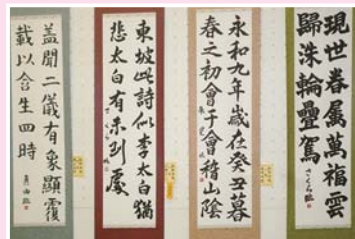 現世眷属萬福雲
歸洙輪疊駕
さくら臨
永和九年歳在癸丑暮
春之初會于會稽山陰
東坡此詩似李太白猶
恐太白有未到處
蓋聞二儀有象顯覆
載以含生四時